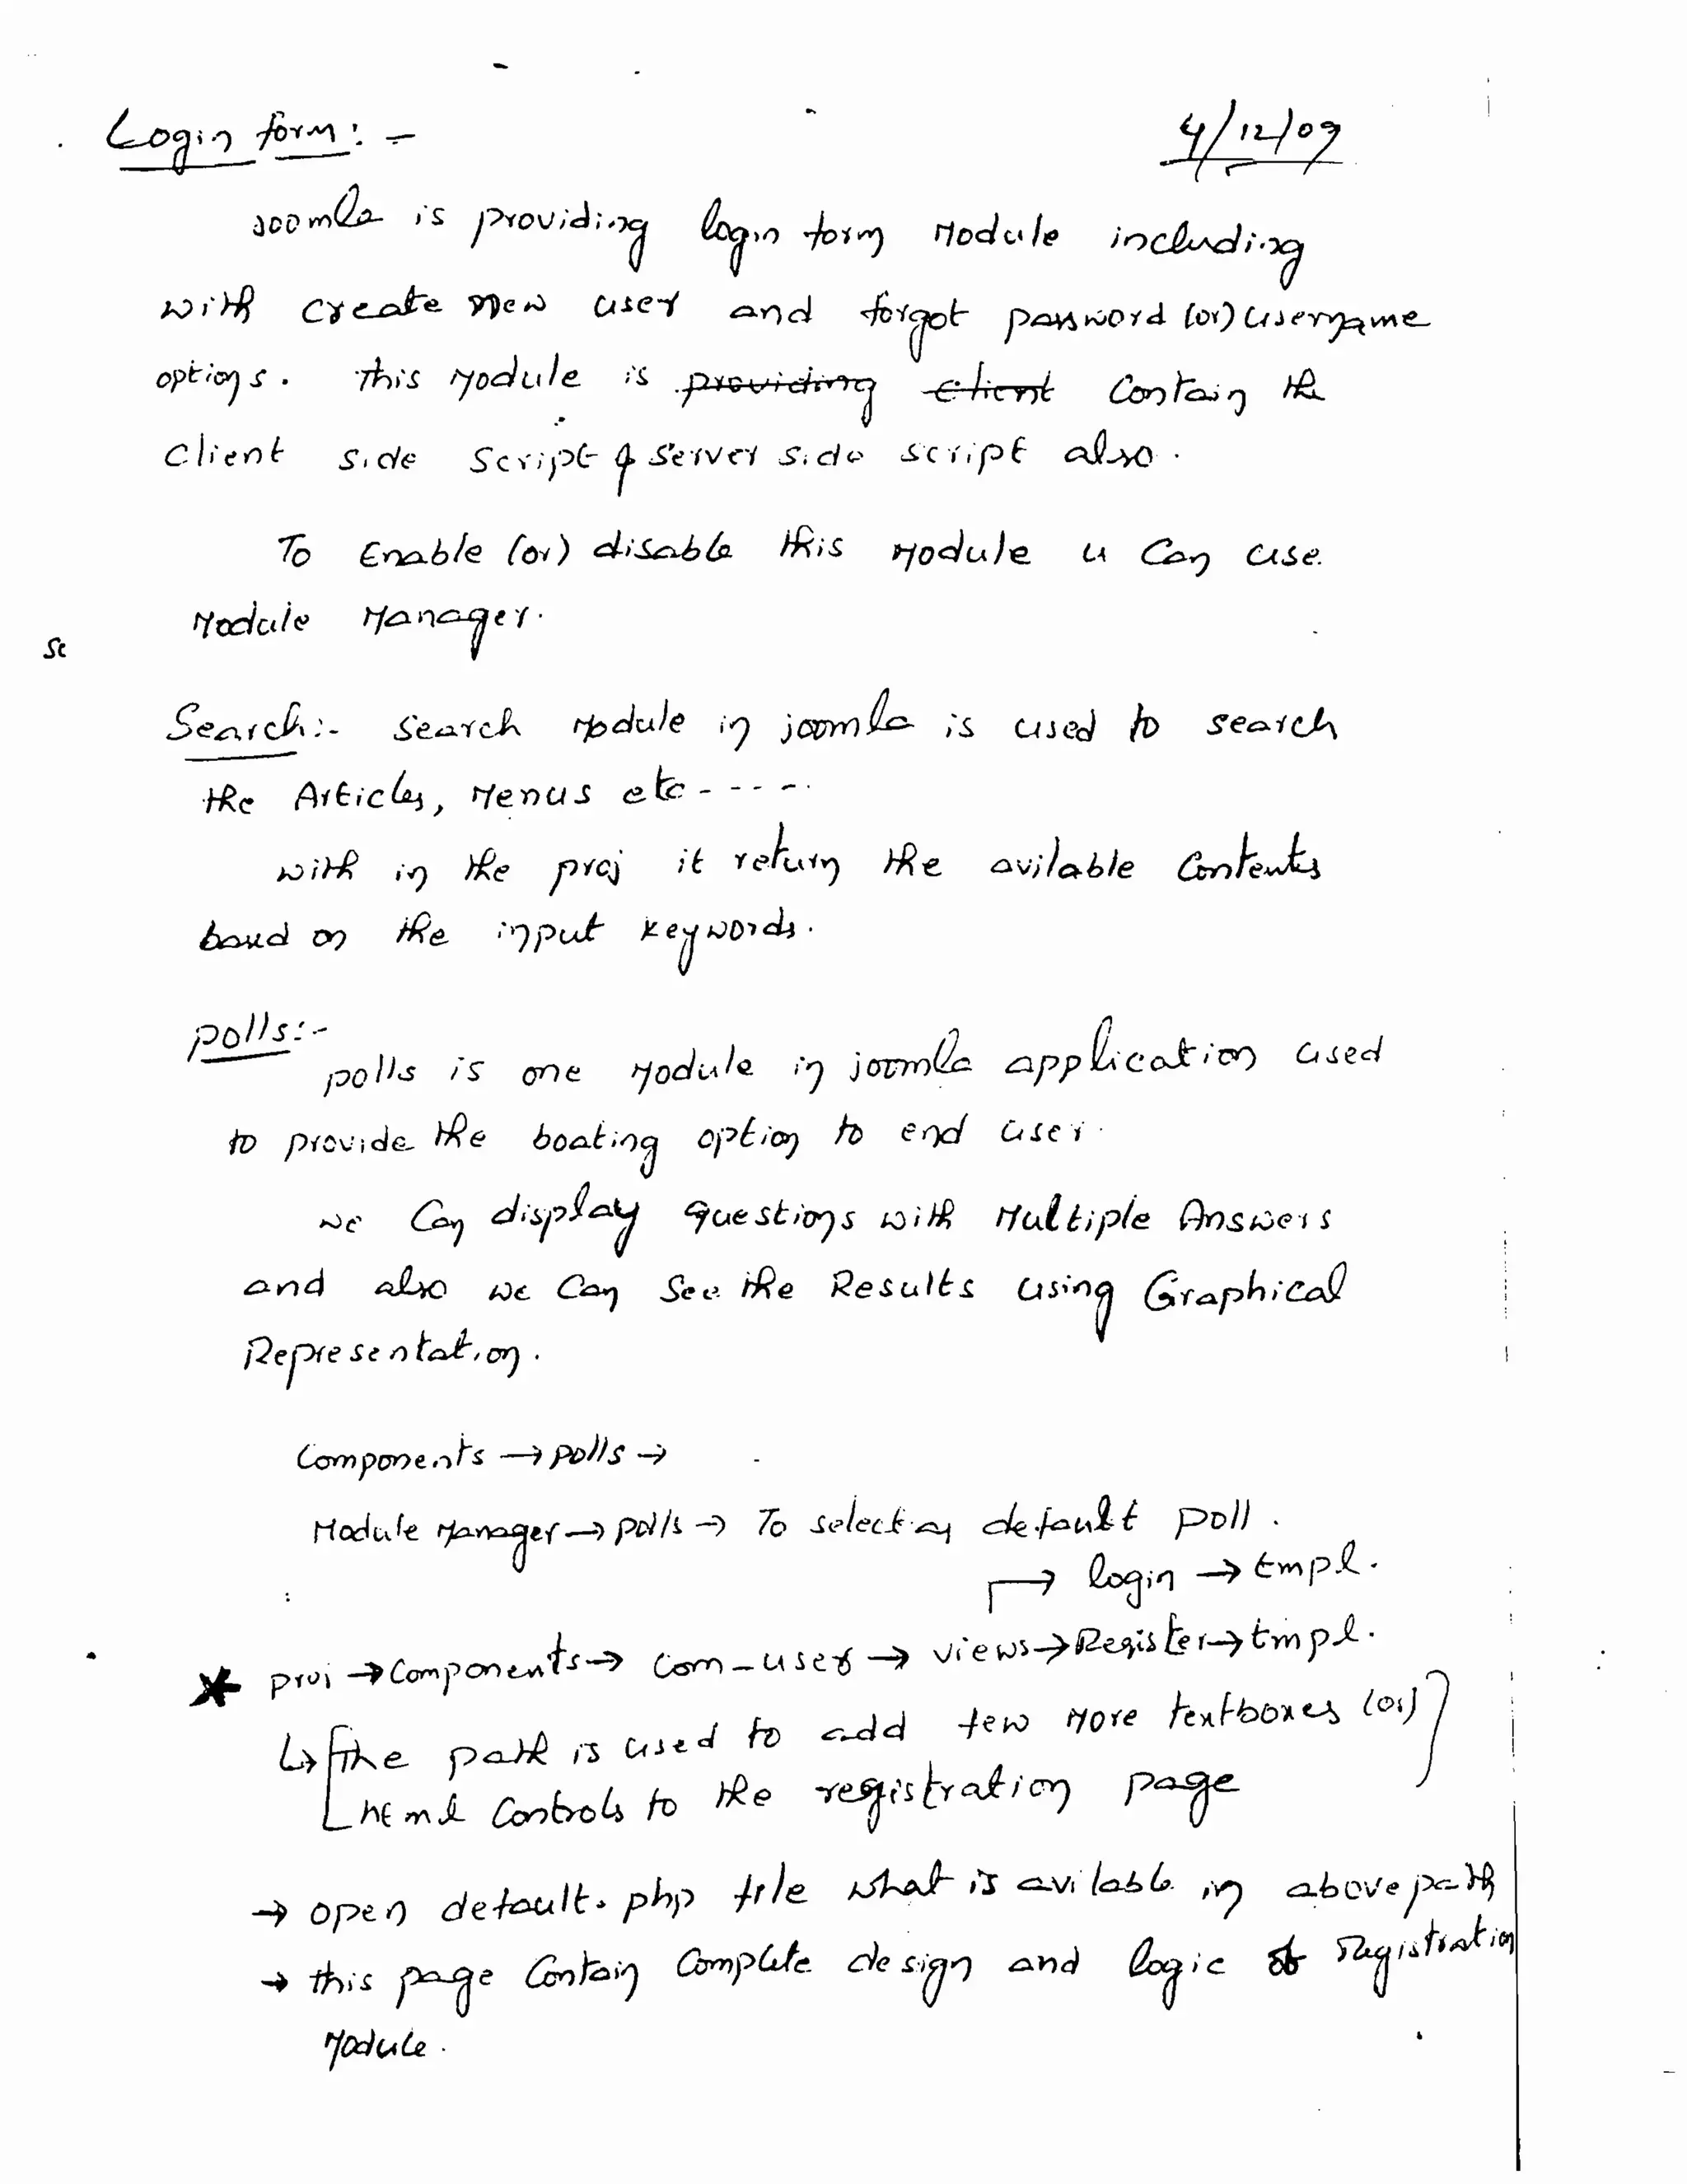 Login form: -
4/12/09
Joomla is providing login form Module including
with create new user and forgot password (or) username
options. This Module is providing client Contain the
Client side script & server side script also.
To Enable (or) disable this Module u Can use.
Module Manager.
Se
Search:- Search Module in joomla is used to search
the Articles, Menus etc - - - - -.
with in the proj it return the avilable Contents
based on the input keywords.
polls:-
polls is one Module in joomla application used
to provide the boating option to end user.
we Can display questions with Multiple Answers
and also we Can See the Results using Graphical
Representation.
Components → polls →
Module Manager → polls → To select an default poll.
→ login → tmpl.
* proj → Components → Com-user → views → Register → tmpl.
↳ [The path is used to add few More textboxes (or)
html Controls to the registration page
→ open default.php file what is avilable in above path
→ this page Contain Complete design and logic of Registration
Module.